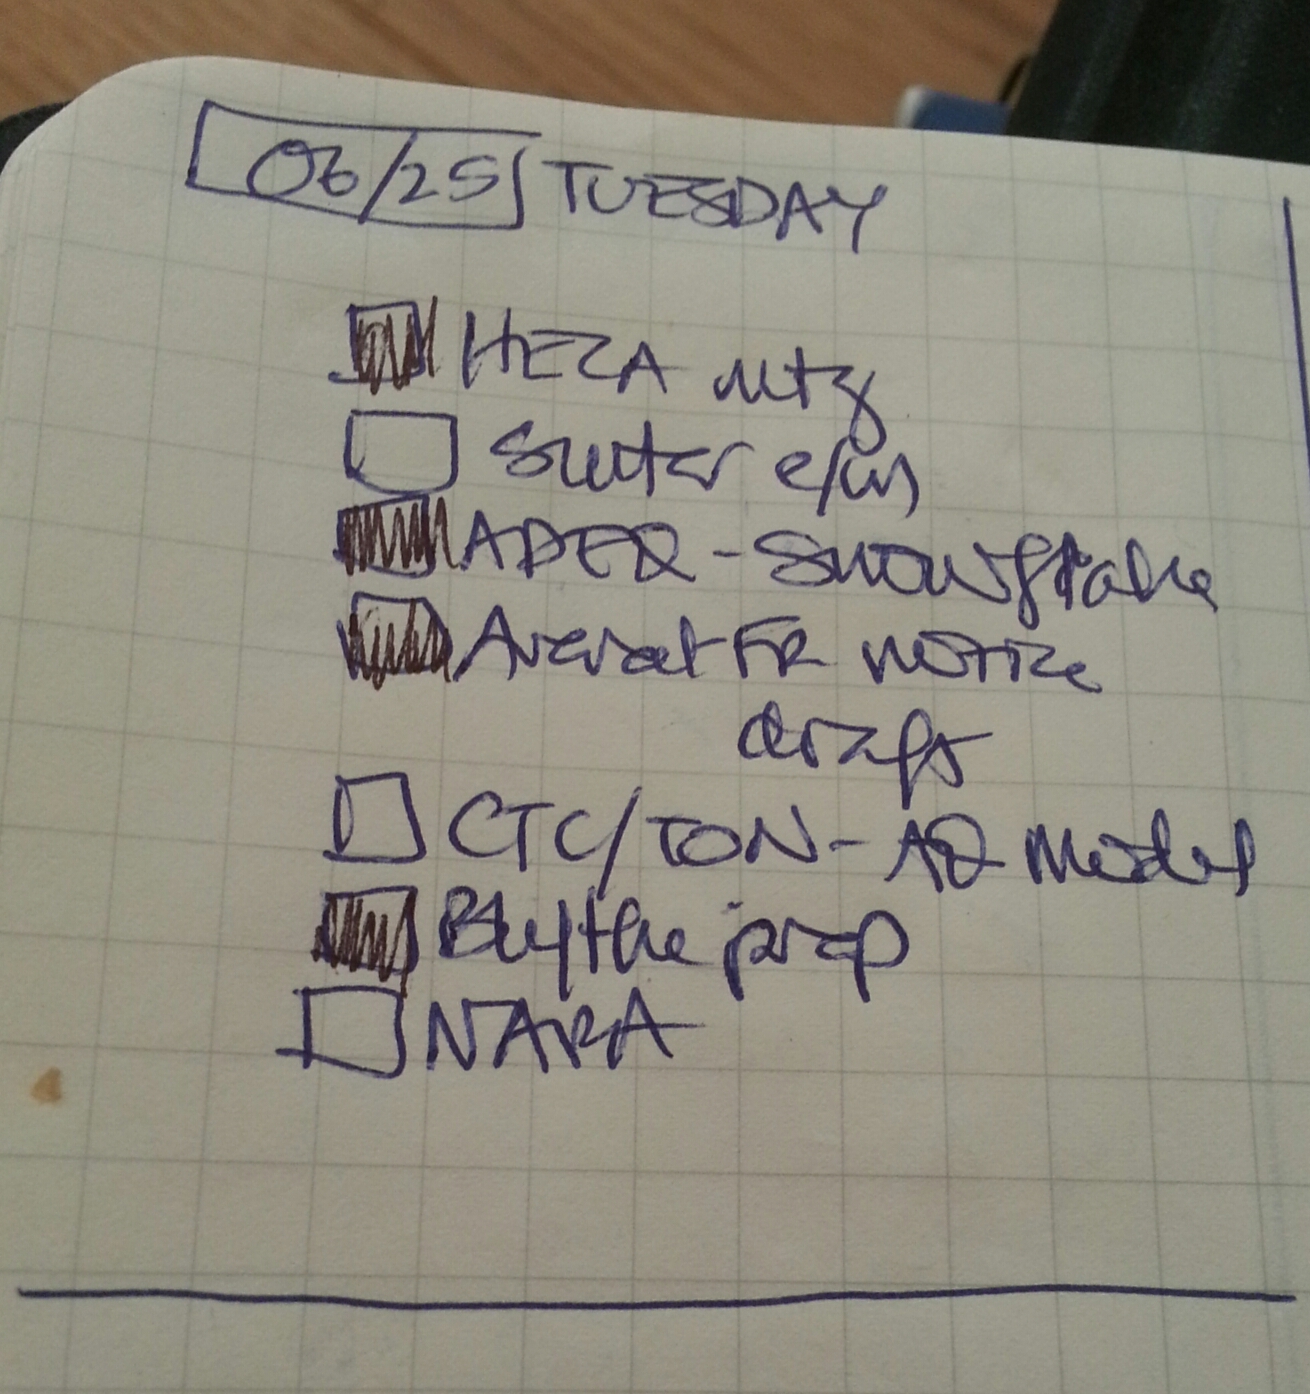 06/25 TUESDAY
HEZA mtg
ADEQ - Snowflake
FR notice
draft
CTC/TON - AQ Model
Blythe prep
NARA